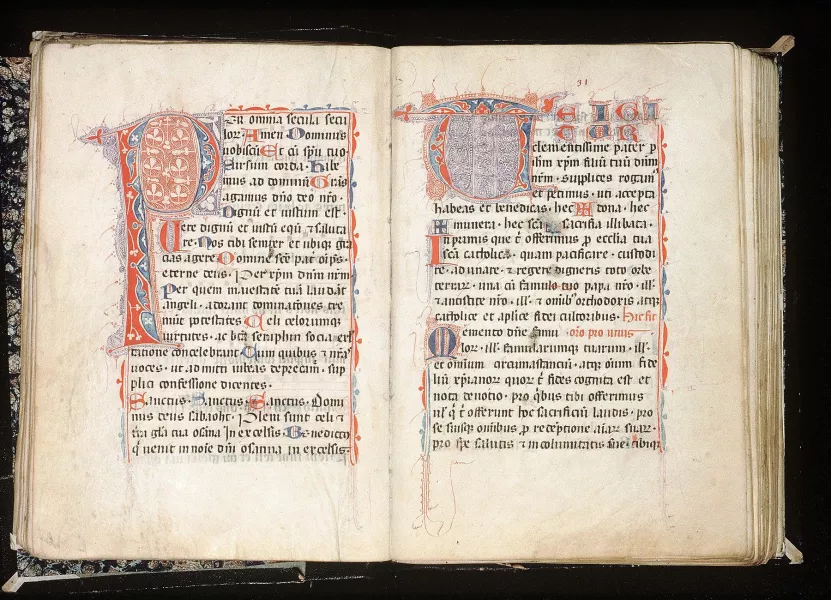 Per omnia secula secu
lor Amen Dominus
uobiscũ Et cũ spũ tuo
Sursum corda Habe
mus ad dominũ Grãs
agamus dño deo nr̃o
Dignũ et iustum est
Uere dignũ et iustũ equũ ⁊ saluta
re Nos tibi semper et ubiqz grã
cias agere Domine sc̃e pat̃ oip̃s
eterne deus Per xp̃m dñm nr̃m
Per quem maiestatẽ tuã laudãt
angeli adorant dominatiões tre
mũt potestates Celi celorumqz
uirtutes ac bta seraphin socia exl
tatione concelebrant Cum quibus ⁊ nr̃as
uoces ut admitti iubeas deprecam̃ sup
plici confessione dicentes
Sanctus Sanctus Sanctus Domi
nus deus sabaoht Pleni sunt celi ⁊
tr̃a glã tua osãna In excelsis Benedictus
q̃ uenit in noĩe dñi osanna in excelsis
31
TE IGI
TUR
clementissime pater p
ihm xp̃m filiũ tuũ dñm
nr̃m supplices rogam̃
et petimus uti accepta
habeas et benedicas hec dona hec
munera hec sc̃a sacrifia illibata
Inprimis que t̃ offerimus p ecclia tua
sc̃a catholica quam pacificare custodi
re adunare ⁊ regere digneris toto orbe
terrarz una cũ famulo tuo papa nr̃o ill
⁊ antistite nr̃o ill ⁊ onĩbz orthodoxis atqz
catholice et aplice fidei cultoribus Hic fit
Memento dñe famu or̃o pro uiuis
lor ill famularumqz tuarum ill
et omium circumstanciũ atqz oium fide
liũ xp̃ianor quor t̃ fides cognita est et
nota deuotio pro q̃bus tibi offerimus
ul̃ q̃ t̃ offerunt hoc sacrificiũ laudis pro
se suisqz omibus p redeptione aĩar suar
pro spe salutis ⁊ incolumitatis sue tibiqz